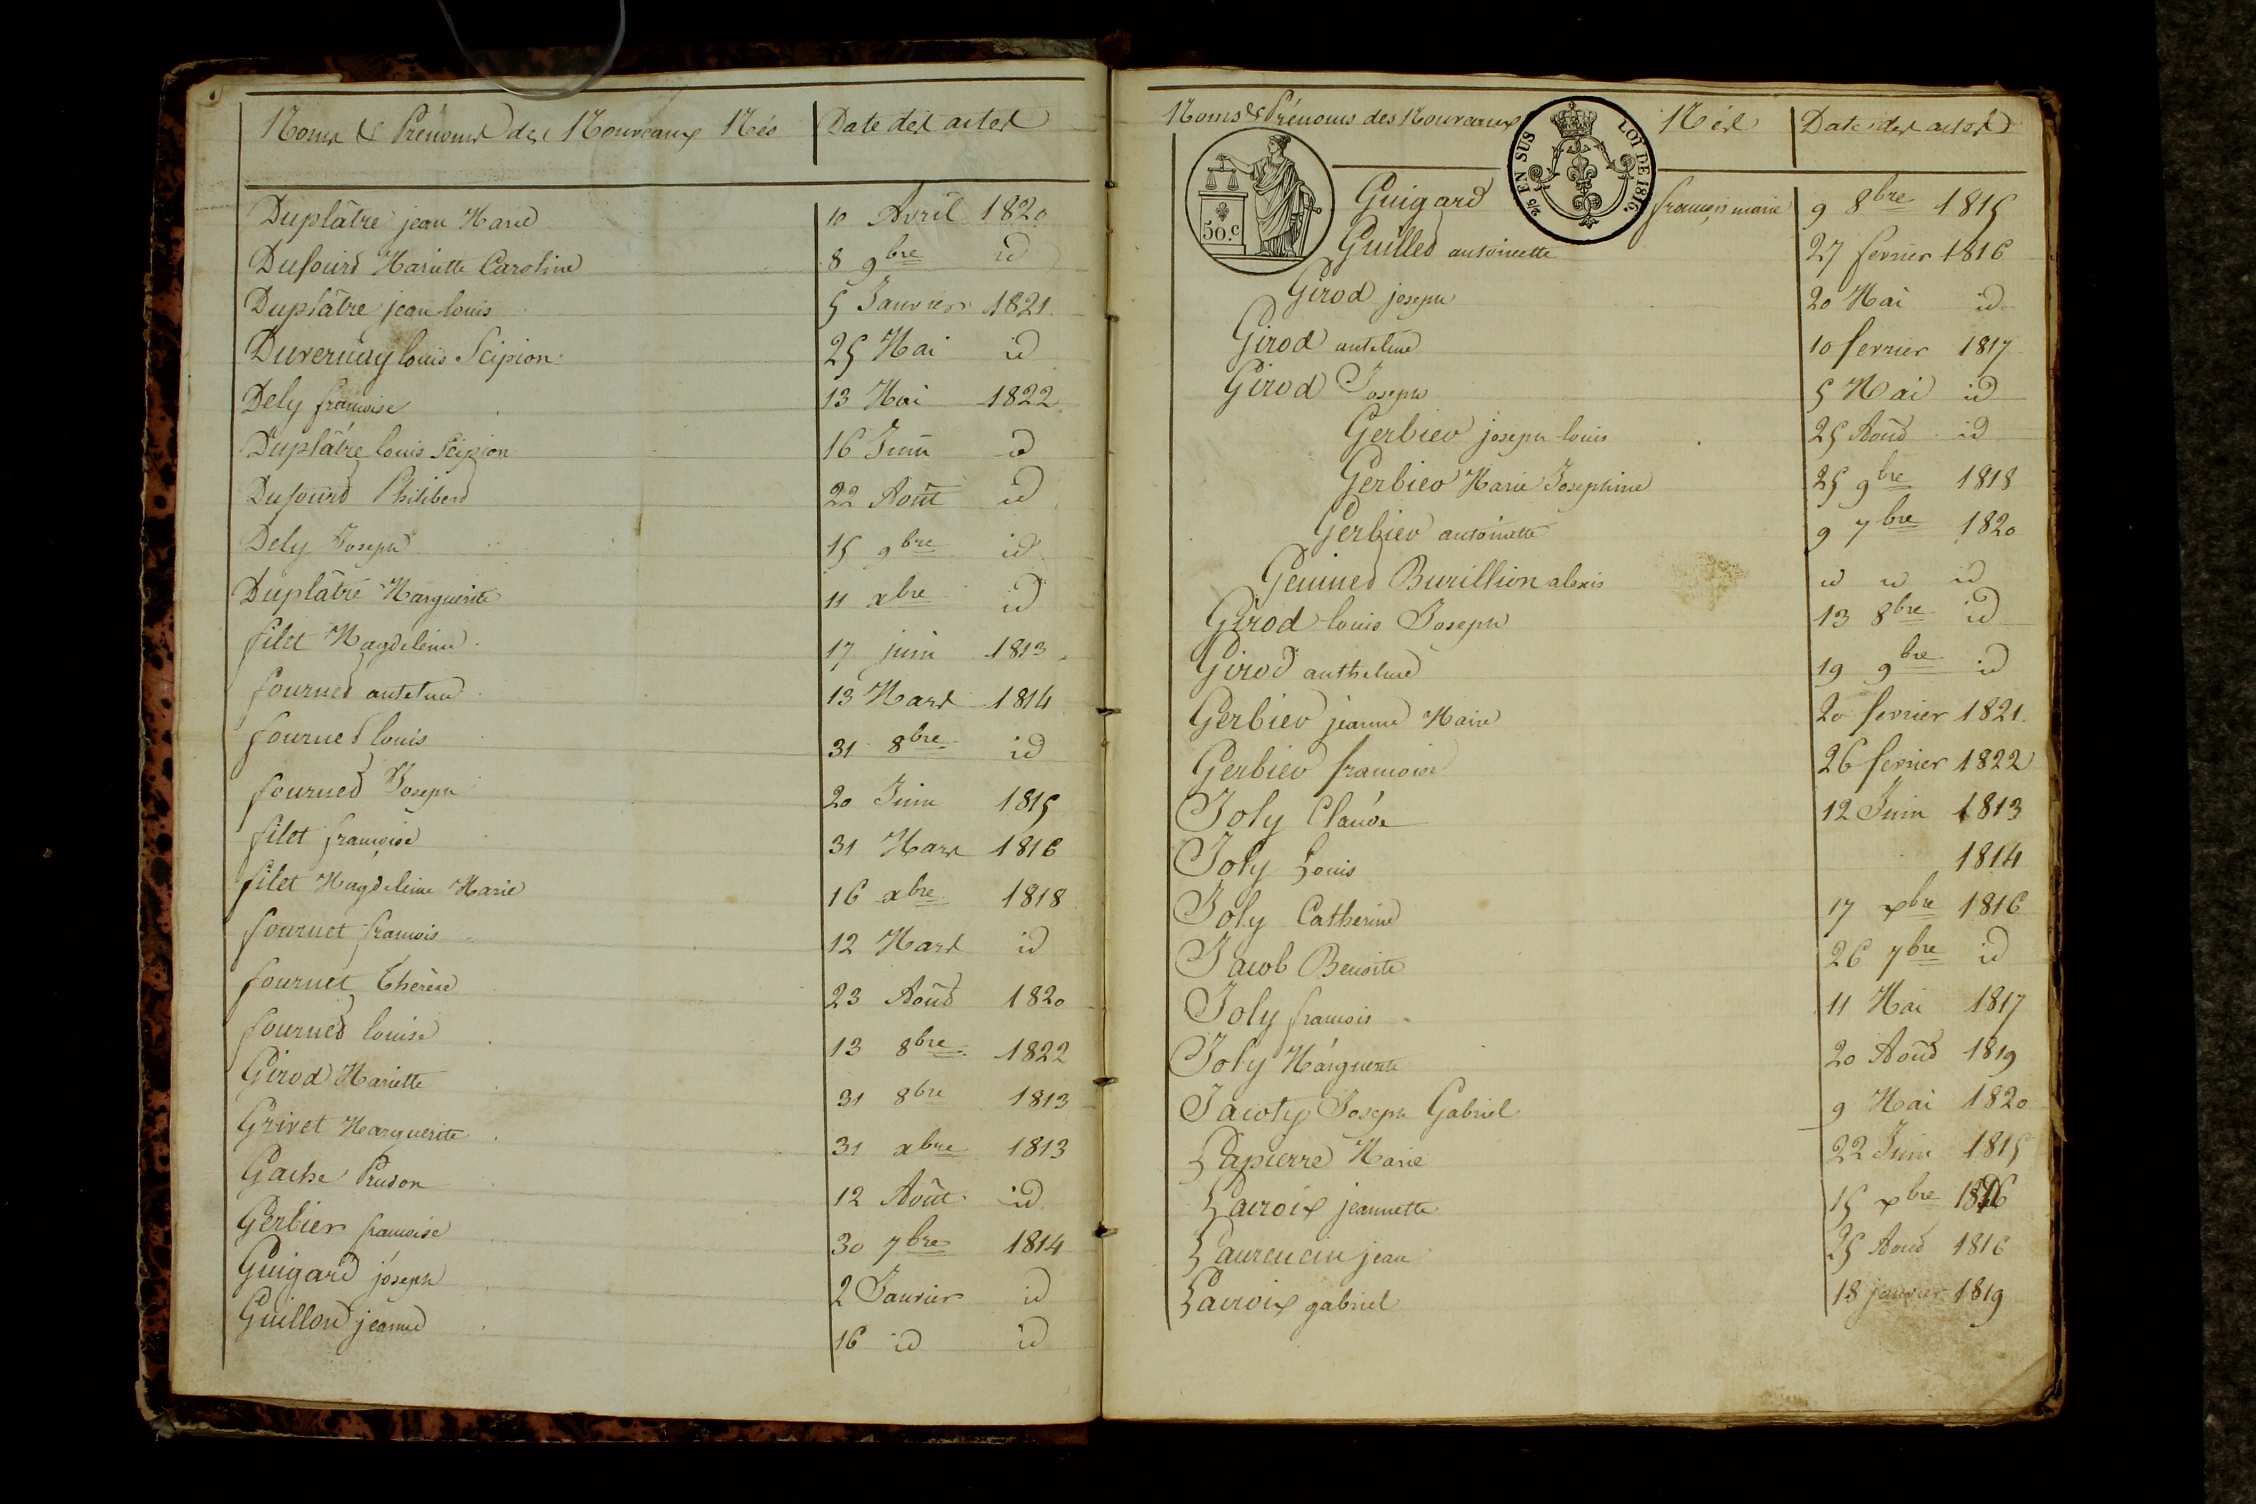 Noms & Prénoms des Nouveaux Nés Date des actes
Duplâtre jean Marie 10 Avril 1820
Dufourd Mariette Caroline 8 9bre id
Duplâtre jean louis 5 Janvier 1821
Duvernay louis Scipion 25 Mai id
Dely francoise 13 Mai 1822
Duplâtre louis Scipion 16 Juin id
Dufourd Philiberd 22 Août id
Dely Joseph 15 9bre id
Duplâtre Marguerite 11 xbre id
filet Magdeleine 17 juin 1813
fourned antelme 13 Mars 1814
fourned louis 31 8bre id
fourned Joseph 20 Juin 1815
filet francoise 31 Mars 1816
filet Magdeleine Marie 16 xbre 1818
fournet francois 12 Mars id
fournet Thérèse 23 Aoûd 1820
fourned louise 13 8bre 1822
Girod Mariette 31 8bre 1813
Grivet Marguerite 31 xbre 1813
Gache Prudon 12 Août id
Gerbier francoise 30 7bre 1814
Guigard joseph 2 Janvier id
Guillon jeanne 16 id id
Noms & Prénoms des Nouveaux Nés Date des actes
50.c
2/5 EN SUS LOI DE 1816.
Guigard françois marie 9 8bre 1815
Guilled antoinette 27 fevrier 1816
Girod joseph 20 Mai id
Girod antelme 10 fevrier 1817
Girod Joseph 5 Mai id
Gerbier joseph louis 25 Aoûd id
Gerbier Marie Josephine 25 9bre 1818
Gerbier antoinette 9 7bre 1820
Burillion alexis id id id
Girod louis Joseph 13 8bre id
Girod anthelme 19 9bre id
Gerbier jeanne Marie 20 fevrier 1821
Gerbier francoise 26 fevrier 1822
Joly Claude 12 Juin 1813
Joly Louis 1814
Joly Catherine 17 xbre 1816
Jacob Benoite 26 7bre id
Joly francois 11 Mai 1817
Joly Marguerite 20 Aoûd 1819
Jacoty Joseph Gabriel 9 Mai 1820
Lapierre Marie 22 Juin 1815
Lacroix jeannette 15 xbre 1816
Laurencin jean 25 Aoûd 1816
Lacroix gabriel 18 janvier 1819